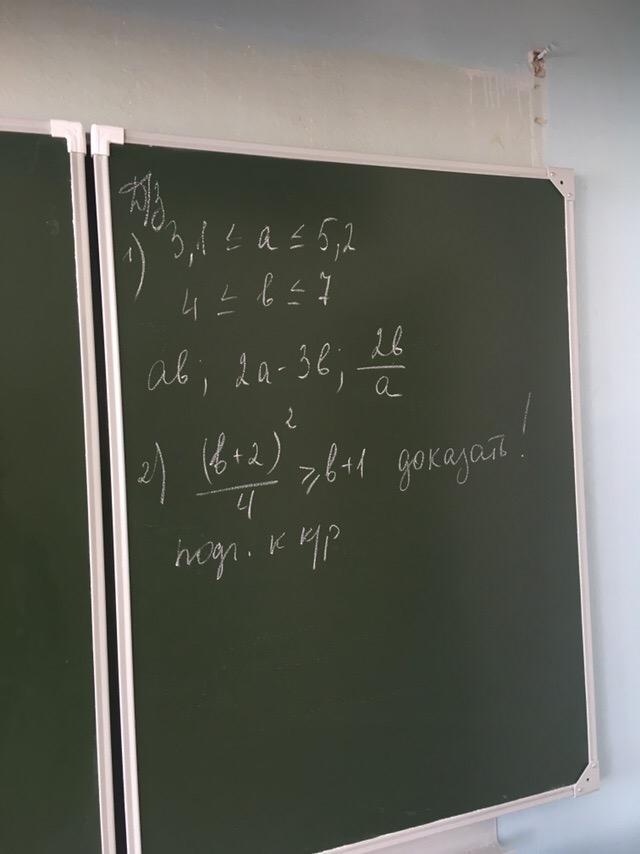 Д/з
1) 3,1 ≤ a ≤ 5,2
4 ≤ в ≤ 7
aв; 2a - 3в; 2в/a
2) (в+2)²/4 ⩾ в+1 доказать!
подг. к к/р